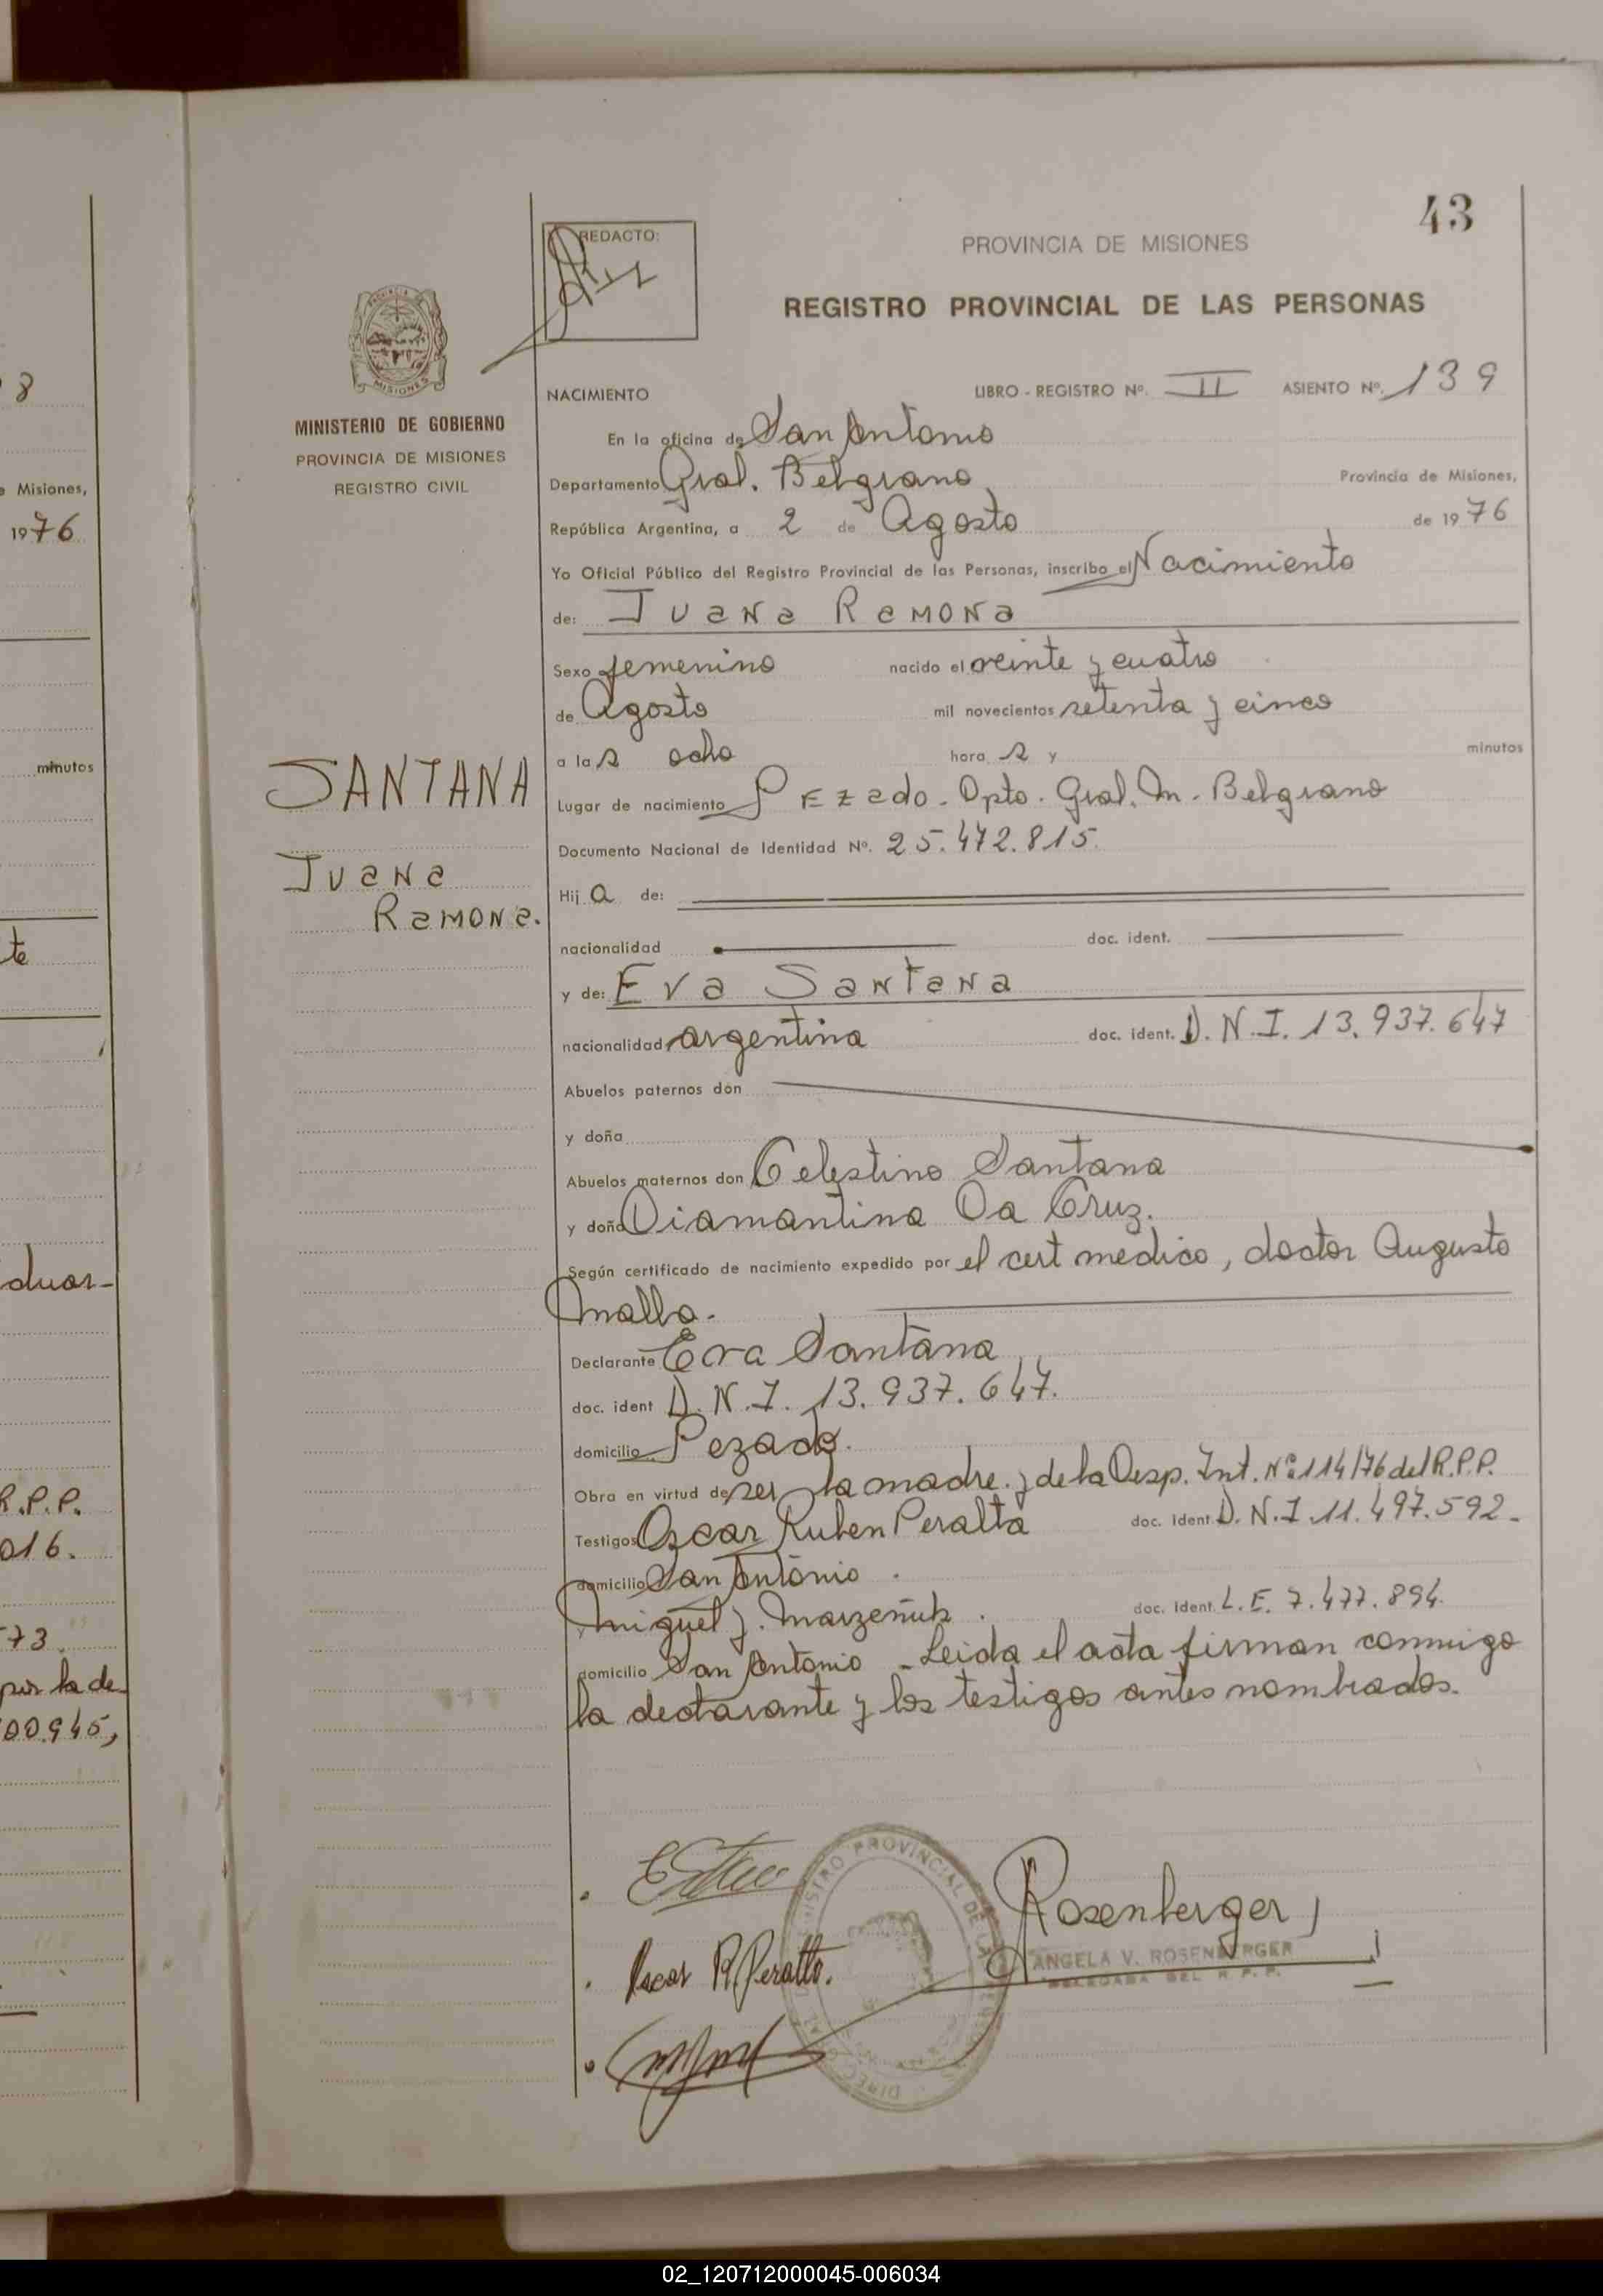 43
REDACTO:
PROVINCIA DE MISIONES
REGISTRO PROVINCIAL DE LAS PERSONAS
MISIONES
MINISTERIO DE GOBIERNO
PROVINCIA DE MISIONES
REGISTRO CIVIL
SANTANA
Juana
Ramona.
NACIMIENTO LIBRO - REGISTRO Nº. II ASIENTO Nº. 139
En la oficina de San Antonio
Departamento Gral. Belgrano Provincia de Misiones,
República Argentina, a 2 de Agosto de 1976
Yo Oficial Público del Registro Provincial de las Personas, inscribo el Nacimiento
de: Juana Ramona
Sexo femenino nacido el veinte y cuatro
de Agosto mil novecientos setenta y cinco
a la s ocho hora s y minutos
Lugar de nacimiento Pezado - Dpto. Gral. M. Belgrano
Documento Nacional de Identidad Nº. 25.472.815.
Hij a de:
nacionalidad doc. ident.
y de: Eva Santana
nacionalidad argentina doc. ident. D.N.I. 13.937.647
Abuelos paternos don
y doña
Abuelos maternos don Celestino Santana
y doña Diamantina Da Cruz.
Según certificado de nacimiento expedido por el cert medico, doctor Augusto
Mallo.
Declarante Eva Santana
doc. ident D.N.I. 13.937.647.
domicilio Pezado.
Obra en virtud de ser la madre y de la Desp. Int. Nº 114/76 del R.P.P.
Testigos Oscar Ruben Peralta doc. ident. D.N.I. 11.497.592.
domicilio San Antonio.
y Miguel J. doc. ident. L.E. 7.477.894.
domicilio San Antonio - Leida el acta firman conmigo
la declarante y los testigos antes nombrados.
Oscar R. Peralta.
Rosenberger
ANGELA V. ROSENBERGER
DELEGADA DEL R.P.P.
8
e Misiones,
1976
minutos
te
duar-
R.P.P.
016.
73.
por la de
00.945,
02_120712000045-006034